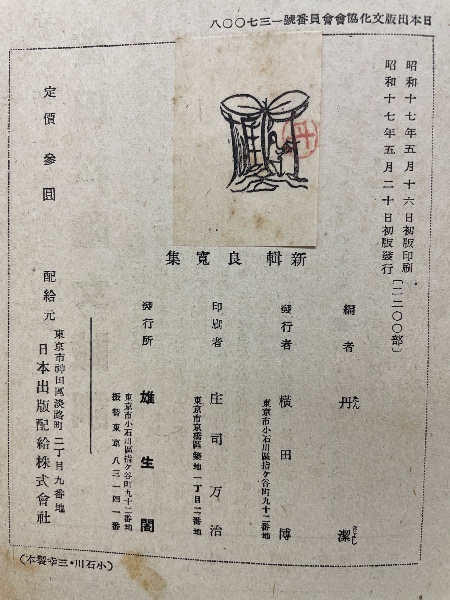 日本出版文化協會會員番號一三七〇〇八
昭和十七年五月十六日初版印刷
昭和十七年五月二十日初版發行〔二二〇〇部〕
丹
新輯良寛集
定價參圓
編者 丹 潔
たん きよし
發行者 横田 博
東京市小石川區指ケ谷町九十二番地
印刷者 庄司万治
東京市京橋區築地一丁目二番地
發行所 雄生閣
東京市小石川區指ケ谷町九十二番地
振替東京八三一四一番
配給元 東京市神田區淡路町二丁目九番地
日本出版配給株式會社
(小石川・三幸製本)